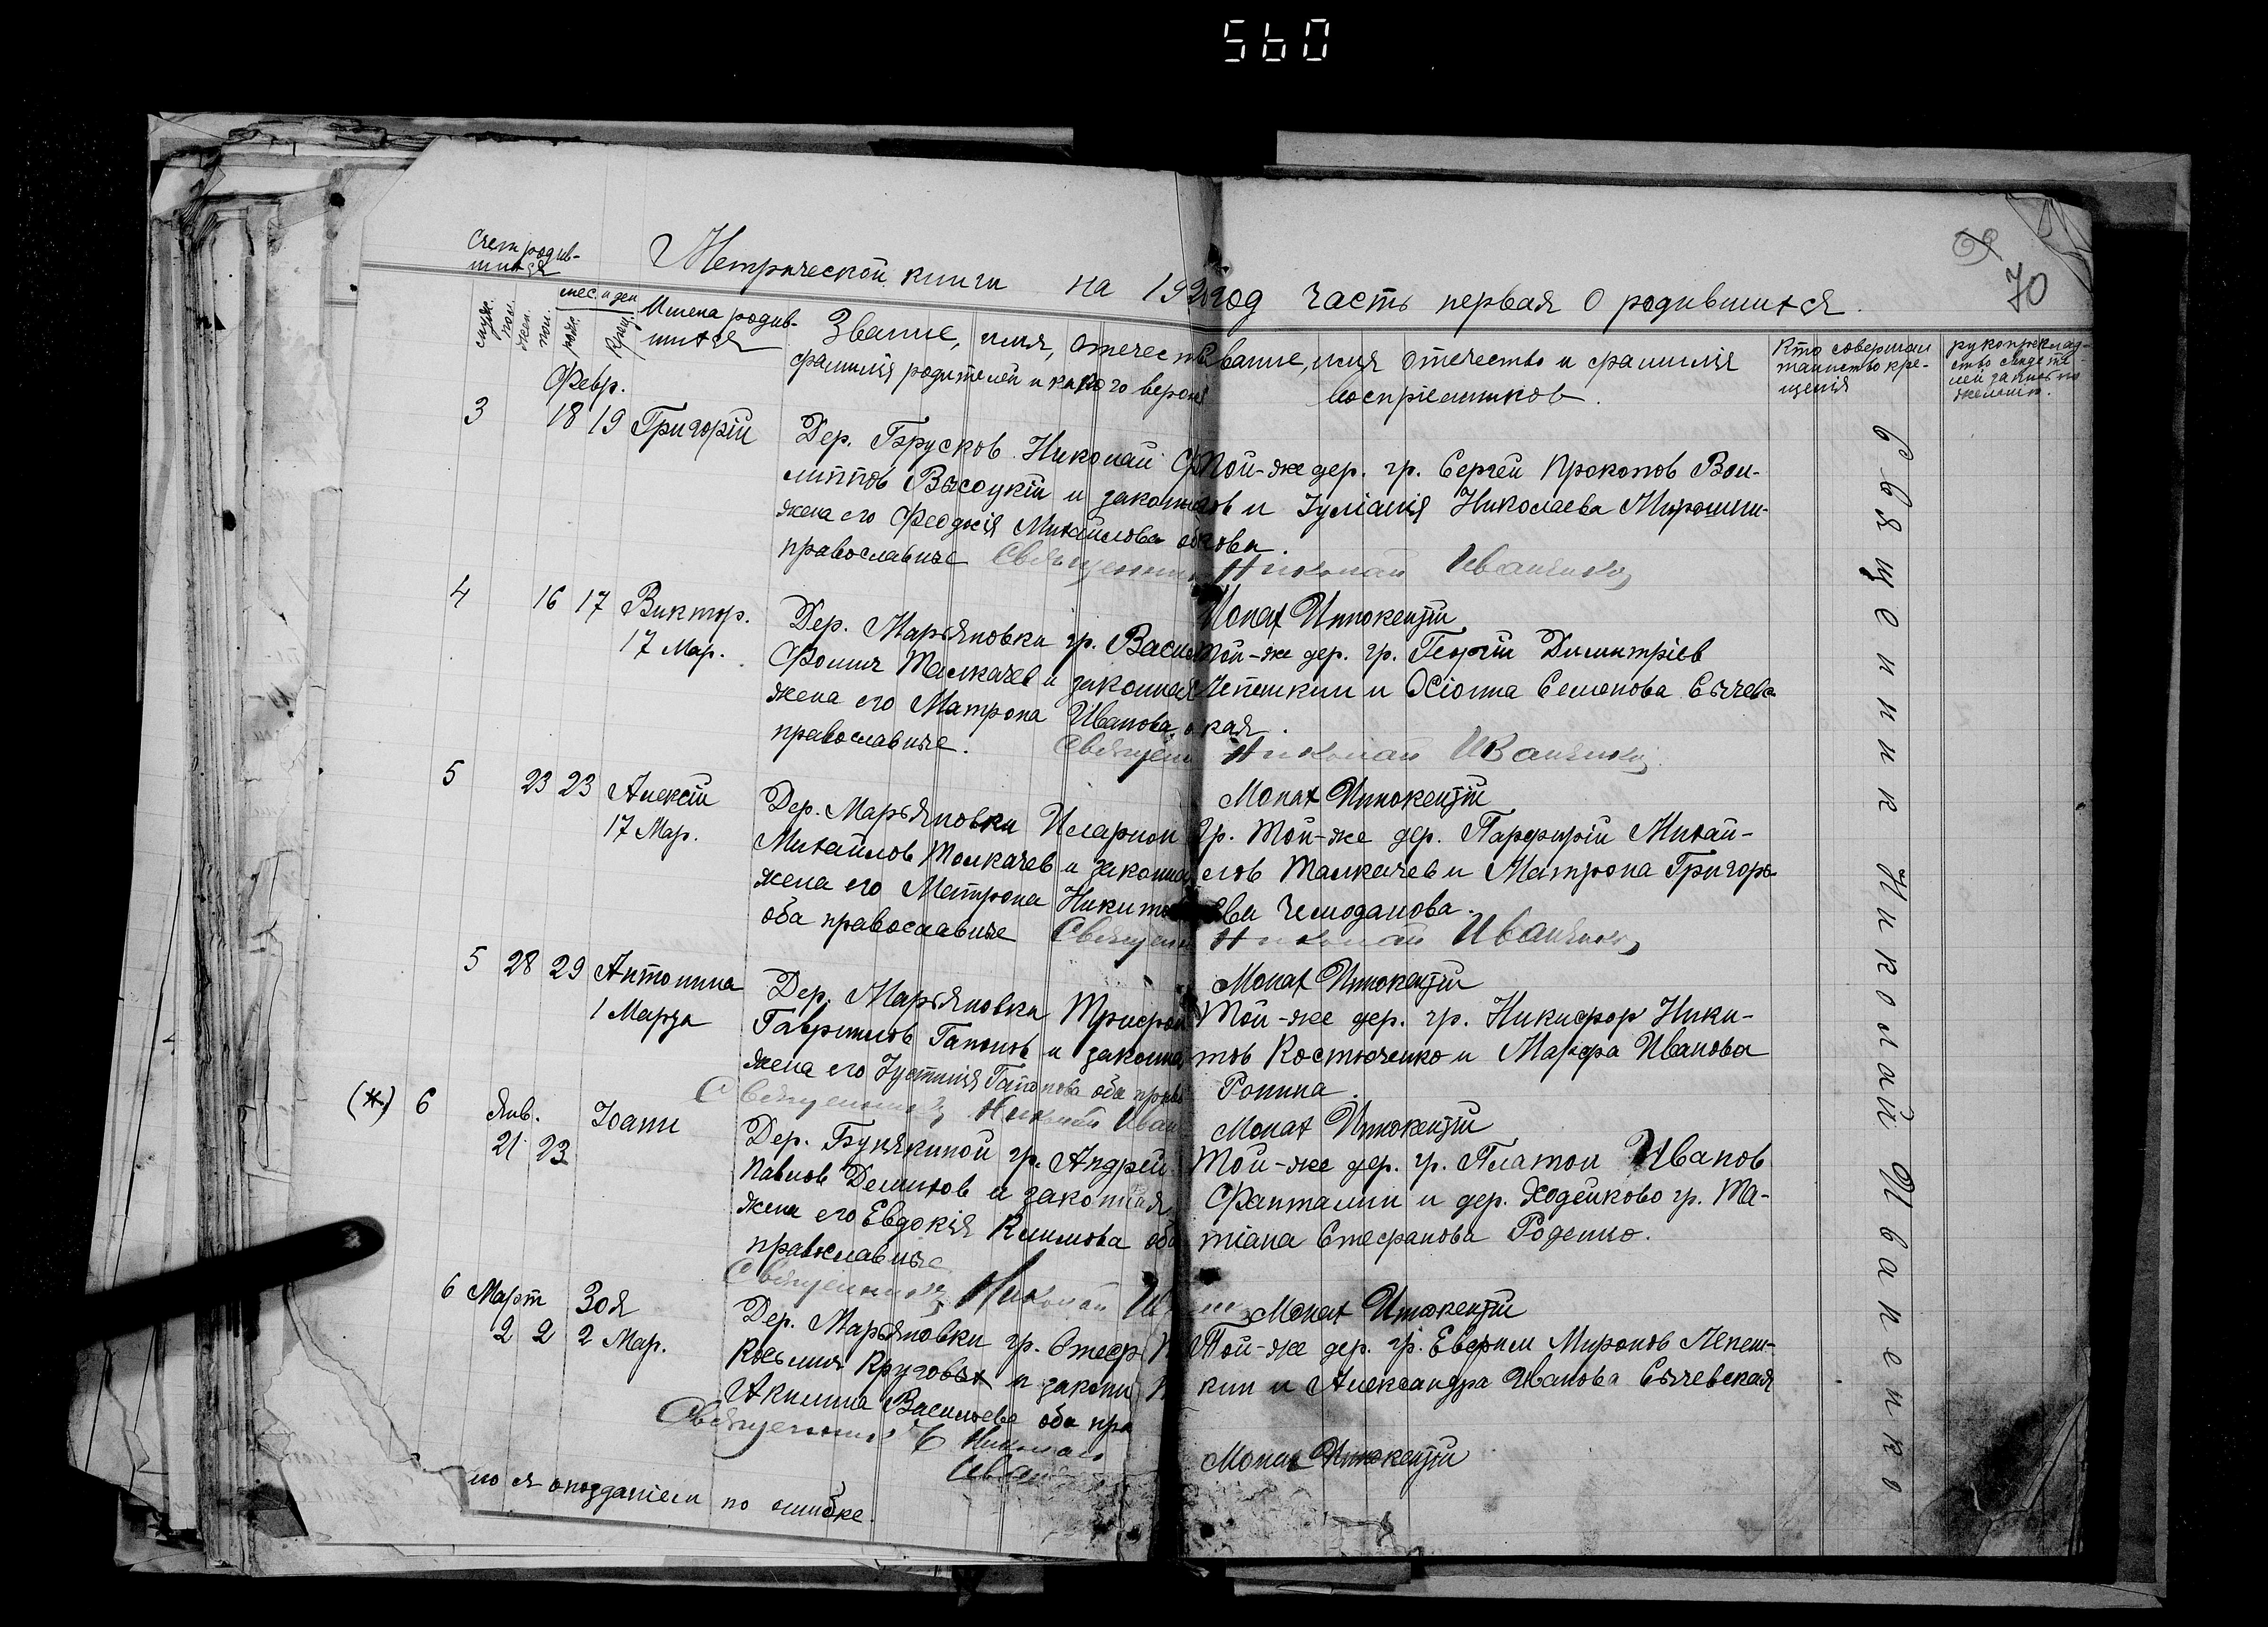 560
69
70
Счет родив-
шихся
Метрической книги на 1920 год часть первая о родившихся.
муж.
пол
жен.
пол.
мес. и ден
рож.
крещ.
Имена родив-
шихся
Звание, имя, отечест
фамилія родителей и какого верои
Звание, имя отечество и фамилія
воспріемников.
Кто совершал
таинство кре-
щенія
рукоприклад-
ство свидете-
лей записи по
желанію.
Февр.
3 18 19 Григорій
Дер. Брусков Николай Фи
липпов Высоцкій и законная
жена его Феодосія Михайлова оба
православные Священник Николай Иваненко
Той-же дер. гр. Сергей Прокопов Вол-
ков и Іуліанія Николаева Мирошни-
кова.
Монах Иннокентій
4 16 17 Виктор.
17 Мар.
Дер. Марьяновки гр. Васил
Фомич Толкачев и законная
жена его Матрона Иванова, о
православные. Священ Николай Иваненко
Той-же дер. гр. Георгій Димитріев
Лепешкин и Юсіопиа Семенова Сычевс-
кая.
Монах Иннокентій
5 23 23 Алексій
17 Мар.
Дер. Марьяновки Иларион
Михайлов Толкачев и законна
жена его Матрона Никит
оба православные Священ Николай Иваненко
Гр. той-же дер. Парфирій Михай-
лов Толкачев и Матрона Григорь-
ева Чемоданова.
Монах Иннокентій
5 28 29 Антонина
1 Марта
Дер. Марьяновки Трифон
Гаврилов Гапонов и законна
жена его Іустинія Гапонова оба прав
Священник Николай Иван
Той-же дер. гр. Никифор Ники-
тов Костюченко и Марфа Иванова
Ронина.
Монах Иннокентій
(*) 6 Янв. Іоанн
21 23
Дер. Бунякиной гр. Андрей
Павлов Демихов и законная
жена его Евдокія Климова оба
православные
Священник Николай Иваненко
Той-же дер. гр. Платон Иванов
Фанталин и дер. Ходейково гр. Та-
тіана Стефанова Роденко.
Монах Иннокентій
6 Март Зоя
2 2 2 Мар.
Дер. Марьяновки гр. Стеф
Косьмич Круговых и законн
Акилина Васильева оба пра
Священник Николай
Иване
Той-же дер. гр. Евфим Миронов Лепеш-
кин и Александра Иванова Сычевская
Монах Иннокентій
Священник Николай Иваненко
но с опозданіем по ошибке.